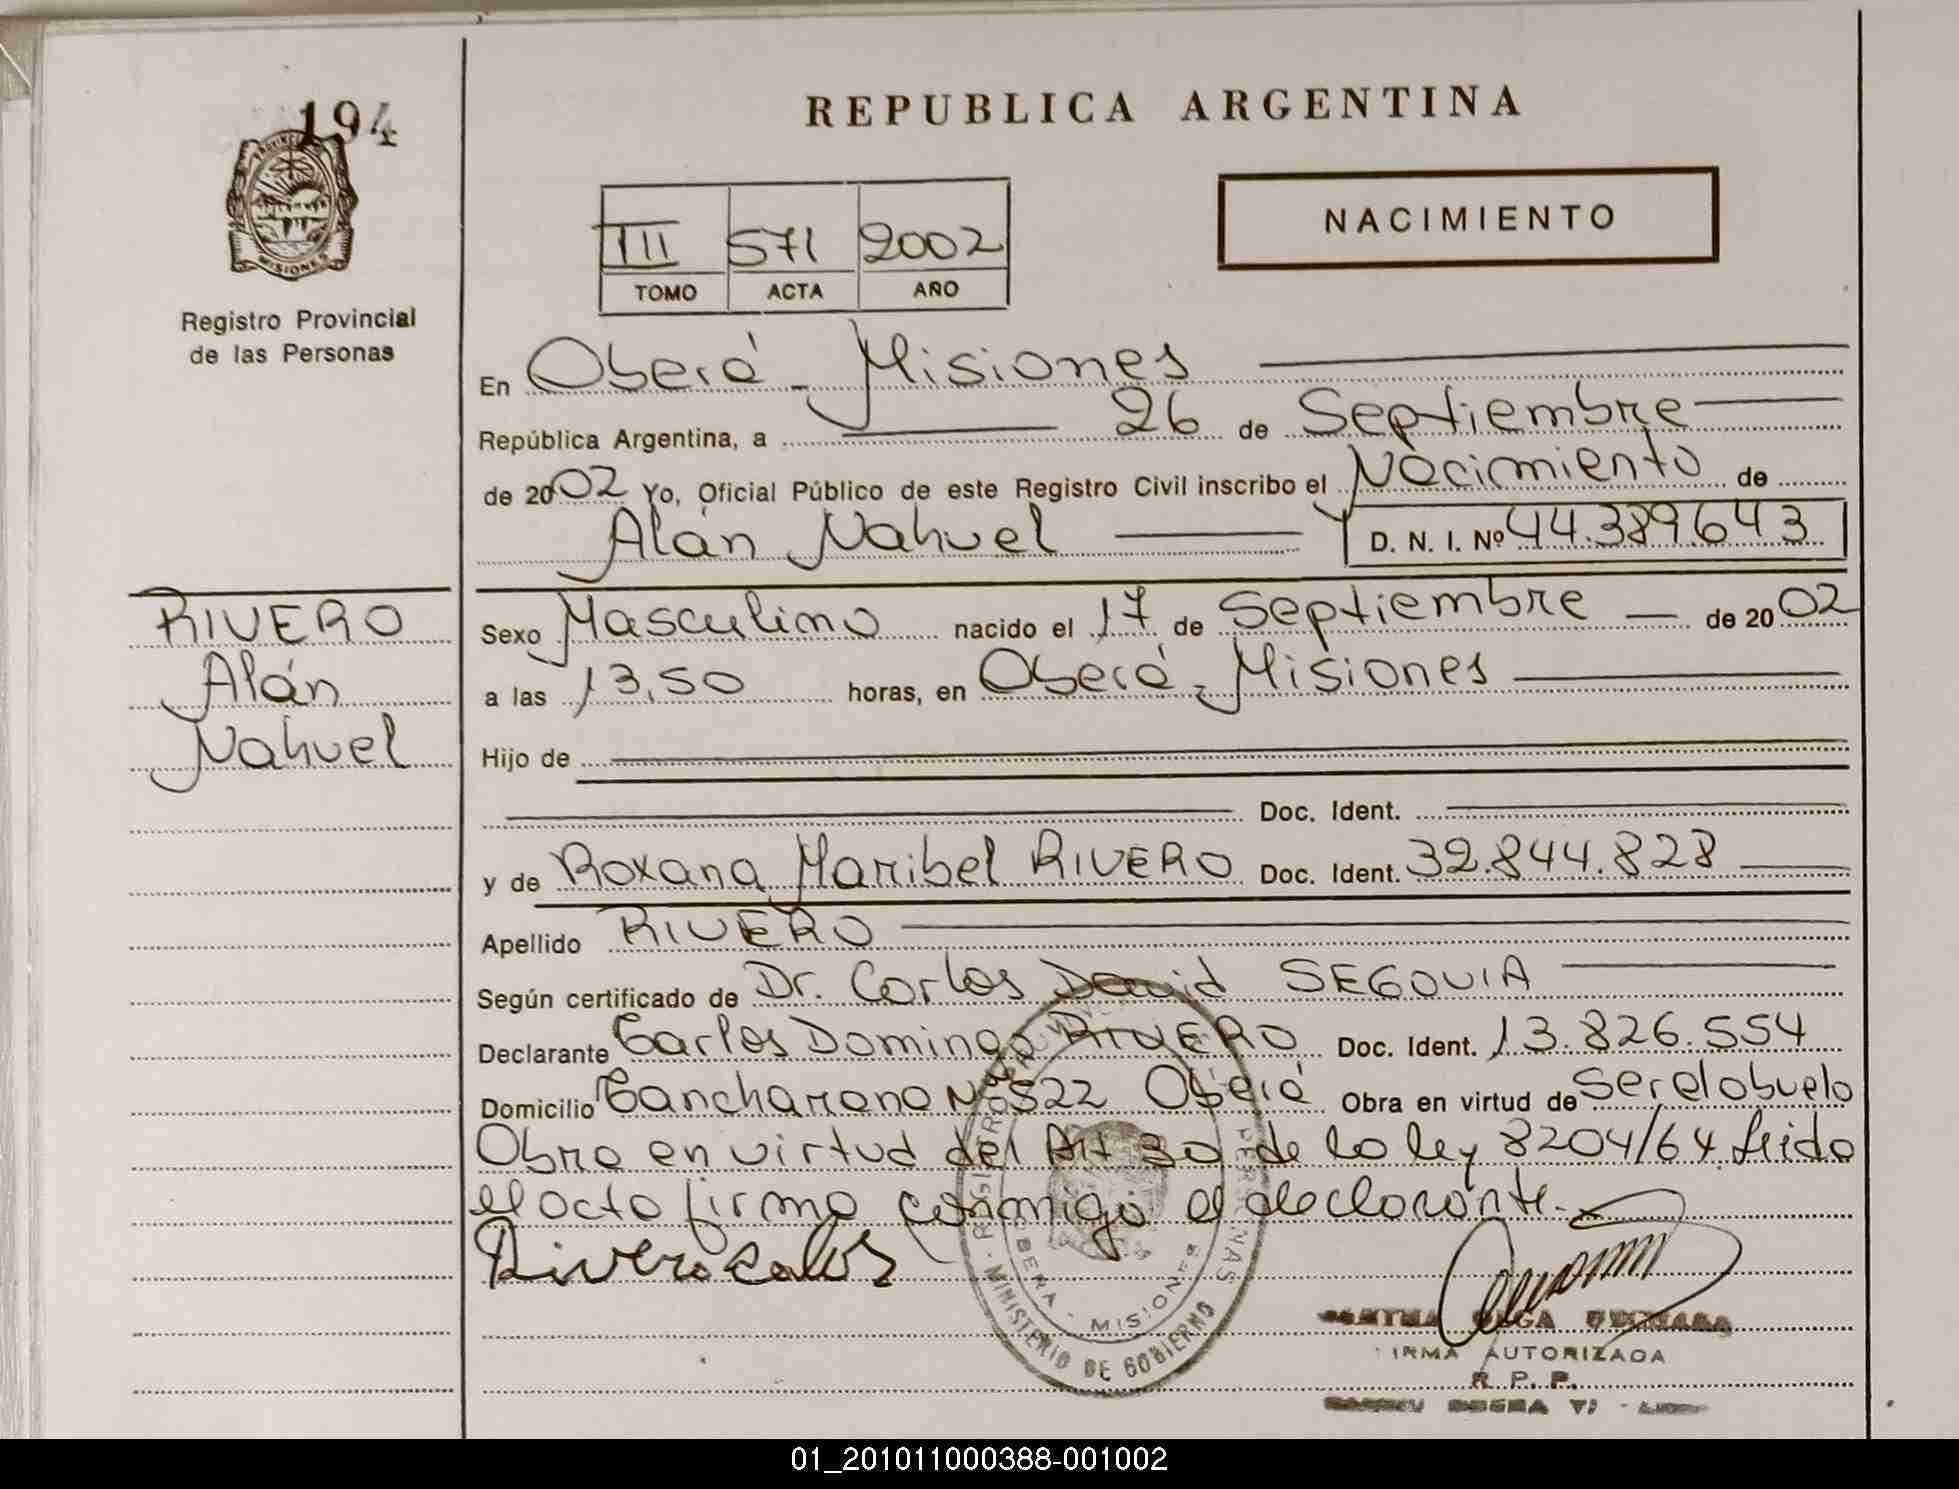 194
REPUBLICA ARGENTINA
PROVINCIA
MISIONES
Registro Provincial
de las Personas
III 571 2002
TOMO ACTA AÑO
NACIMIENTO
En Oberá - Misiones
República Argentina, a 26 de Septiembre
de 2002 Yo, Oficial Público de este Registro Civil inscribo el Nacimiento de
Alán Nahuel D. N. I. Nº 44.389.643
RIVERO
Alán
Nahuel
Sexo Masculino nacido el 17 de Septiembre de 2002
a las 13,50 horas, en Oberá - Misiones
Hijo de
Doc. Ident.
y de Roxana Maribel RIVERO Doc. Ident. 32.844.828
Apellido RIVERO
Según certificado de Dr. Carlos David SEGOVIA
Declarante Carlos Domingo RIVERO Doc. Ident. 13.826.554
Domicilio Nº 522 Oberá Obra en virtud de ser el abuelo
Obra en virtud del Art 30 de la ley 8204/64 leida
el acta firma conmigo el declarante.-
Rivero Calos
OBERA - MISIONES
MINISTERIO DE GOBIERNO
OLGA
FIRMA AUTORIZADA
R. P. P.
01_201011000388-001002